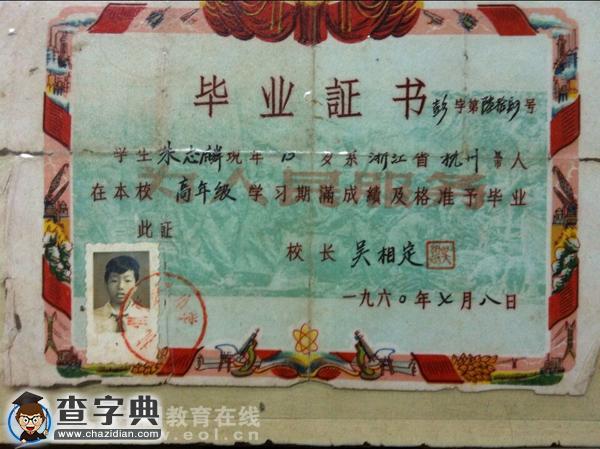 毕业証书
彭字第陸拾 号
学生朱志麟现年 岁系浙江省杭州 人
在本校高年级学习期滿成绩及格准予毕业
此証
校长 吴相定
一九六〇年七月八日
为人民服务
查字典
www.chazidian.com
教育在线
.eol.cn